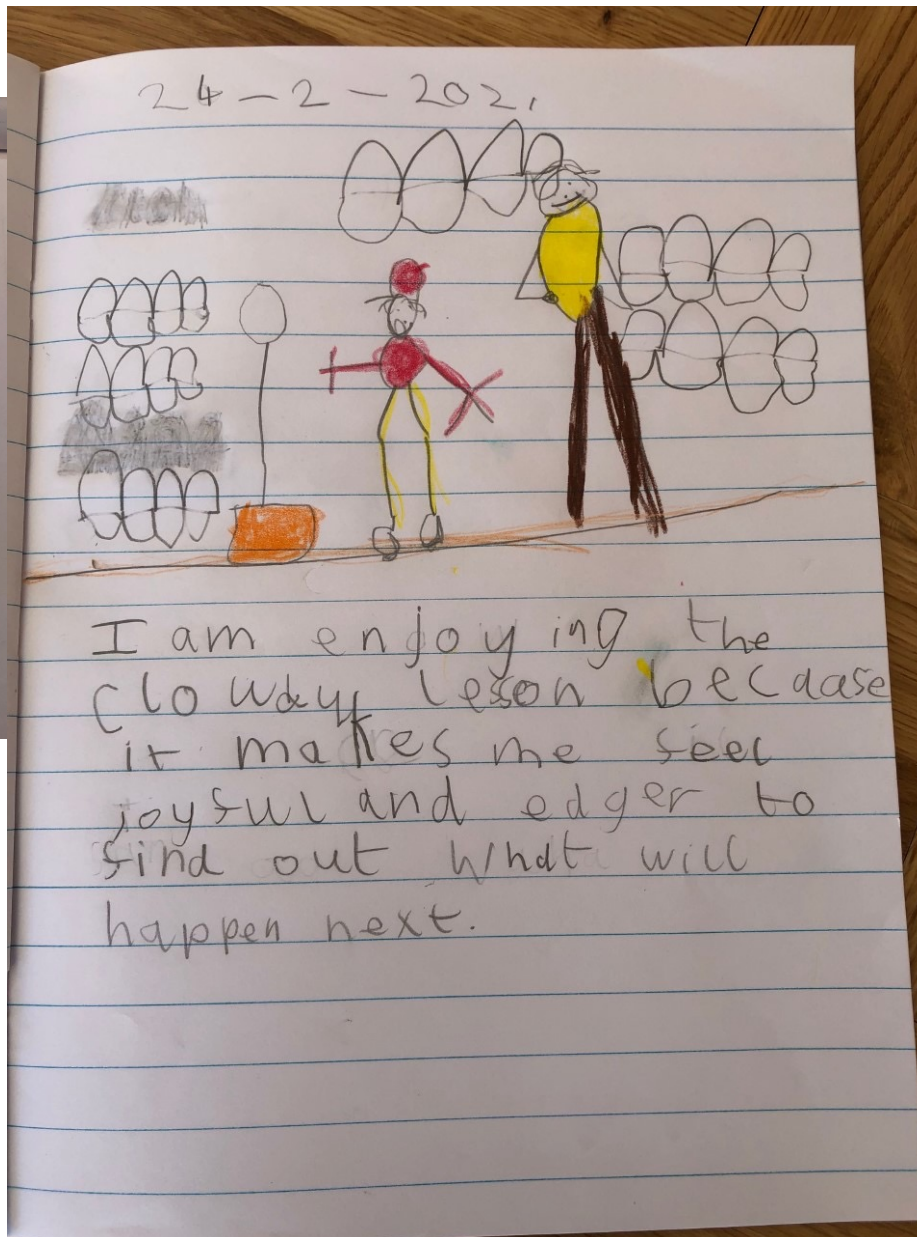 24-2-2021
I am enjoying the
Cloway lesson because
it makes me feel
joyful and edger to
find out what will
happen next.